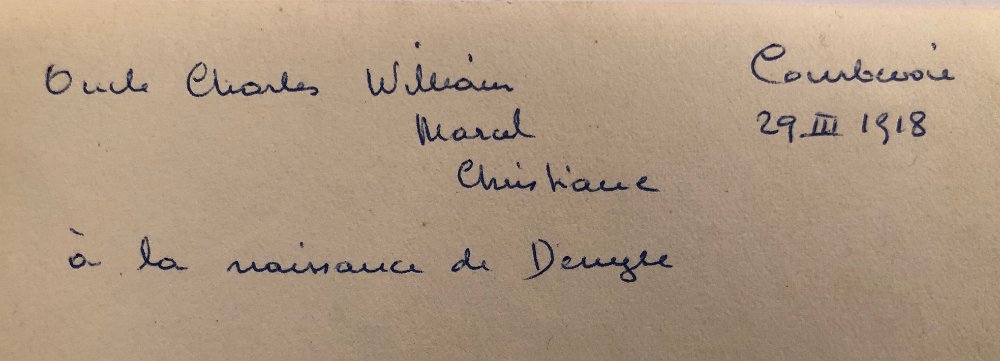 Oncle Charles William Courbevoie
Marcel 29 III 1918
Christiane
à la naissance de Denyse